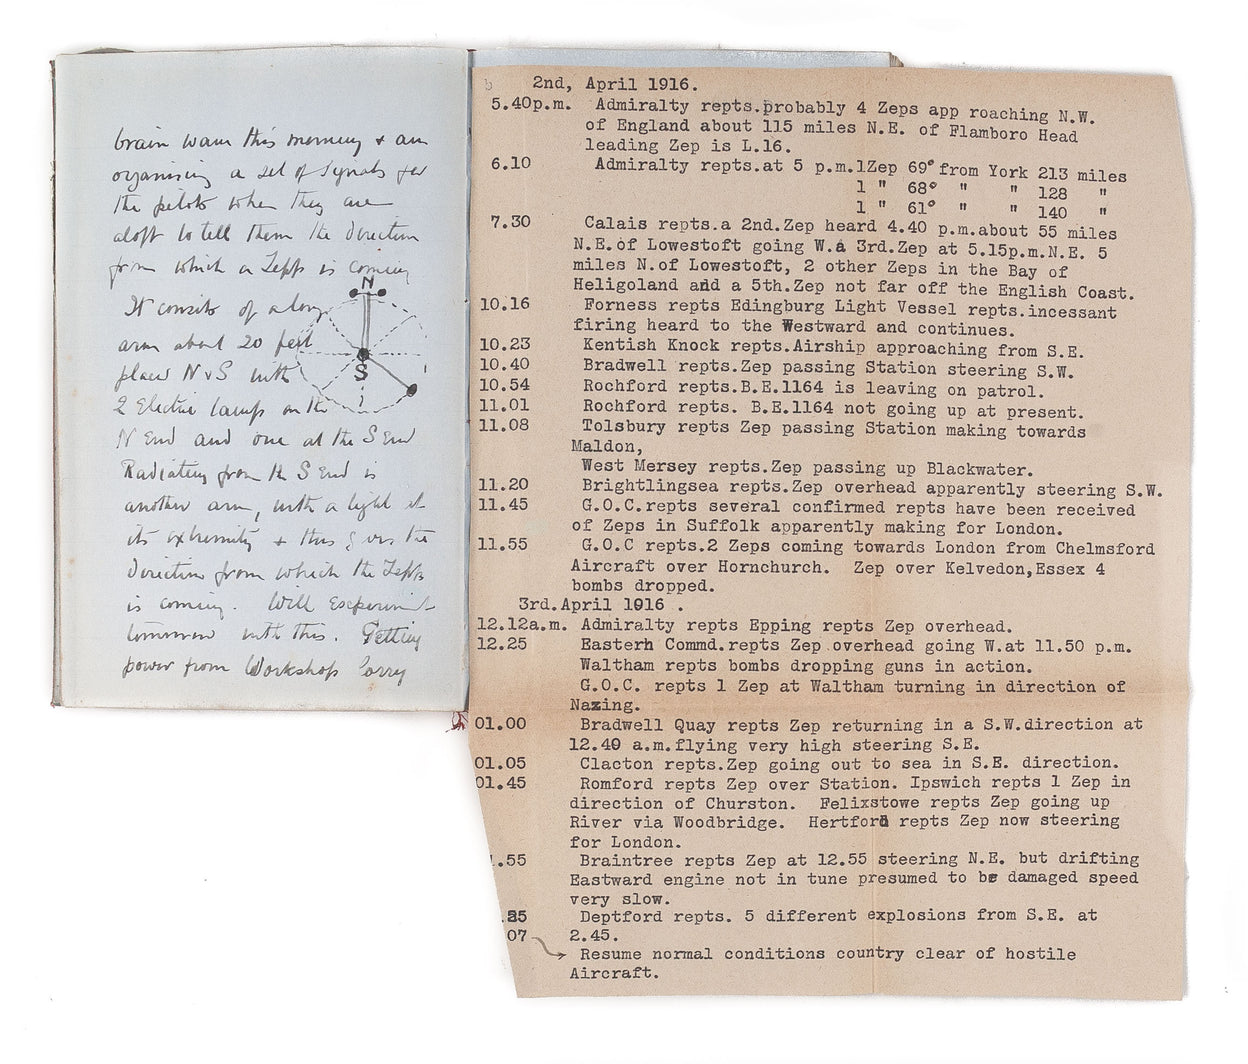 brain wave this morning & am
organising a set of Signals for
the pilots when they are
aloft to tell them the direction
from which a Zepp is coming
It consists of a long
arm about 20 feet
placed N & S with
2 Electric lamps on the
N End and one at the S End
Radiating from the S End is
another arm, with a light at
its extremity & this gives the
direction from which the Zepp
is coming. Will Experiment
tomorrow with this. Getting
power from Workshop lorry
N
S
2nd, April 1916.
5.40p.m. Admiralty repts.probably 4 Zeps app roaching N.W.
of England about 115 miles N.E. of Flamboro Head
leading Zep is L.16.
6.10 Admiralty repts.at 5 p.m.1Zep 69° from York 213 miles
1 " 68° " " 128 "
1 " 61° " " 140 "
7.30 Calais repts.a 2nd.Zep heard 4.40 p.m.about 55 miles
N.E.of Lowestoft going W.a 3rd.Zep at 5.15p.m.N.E. 5
miles N.of Lowestoft, 2 other Zeps in the Bay of
Heligoland and a 5th.Zep not far off the English Coast.
10.16 Forness repts Edingburg Light Vessel repts.incessant
firing heard to the Westward and continues.
10.23 Kentish Knock repts.Airship approaching from S.E.
10.40 Bradwell repts.Zep passing Station steering S.W.
10.54 Rochford repts.B.E.1164 is leaving on patrol.
11.01 Rochford repts. B.E.1164 not going up at present.
11.08 Tolsbury repts Zep passing Station making towards
Maldon,
West Mersey repts.Zep passing up Blackwater.
11.20 Brightlingsea repts.Zep overhead apparently steering S.W.
11.45 G.O.C.repts several confirmed repts have been received
of Zeps in Suffolk apparently making for London.
11.55 G.O.C repts.2 Zeps coming towards London from Chelmsford
Aircraft over Hornchurch. Zep over Kelvedon,Essex 4
bombs dropped.
3rd.April 1916 .
12.12a.m. Admiralty repts Epping repts Zep overhead.
12.25 Eastern Commd.repts Zep overhead going W.at 11.50 p.m.
Waltham repts bombs dropping guns in action.
G.O.C. repts 1 Zep at Waltham turning in direction of
Nazing.
01.00 Bradwell Quay repts Zep returning in a S.W.direction at
12.40 a.m.flying very high steering S.E.
01.05 Clacton repts.Zep going out to sea in S.E. direction.
01.45 Romford repts Zep over Station. Ipswich repts 1 Zep in
direction of Churston. Felixstowe repts Zep going up
River via Woodbridge. Hertford repts Zep now steering
for London.
.55 Braintree repts Zep at 12.55 steering N.E. but drifting
Eastward engine not in tune presumed to be damaged speed
very slow.
Deptford repts. 5 different explosions from S.E. at
07 2.45.
Resume normal conditions country clear of hostile
Aircraft.